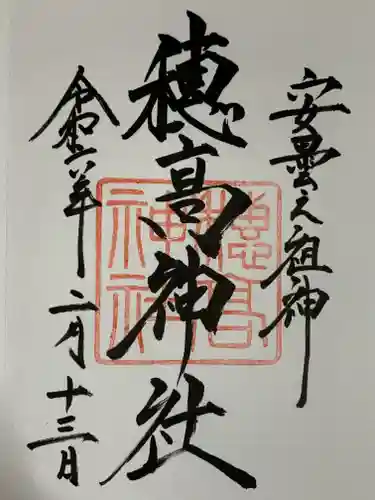 安曇之祖神
穂高神社
令和六年 二月 十三日
穂高
神社